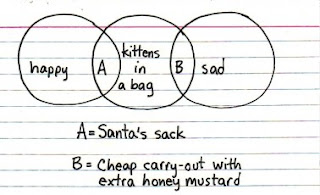 happy
A
kittens
in
a bag
B
sad
A = Santa's sack
B = Cheap carry-out with
extra honey mustard